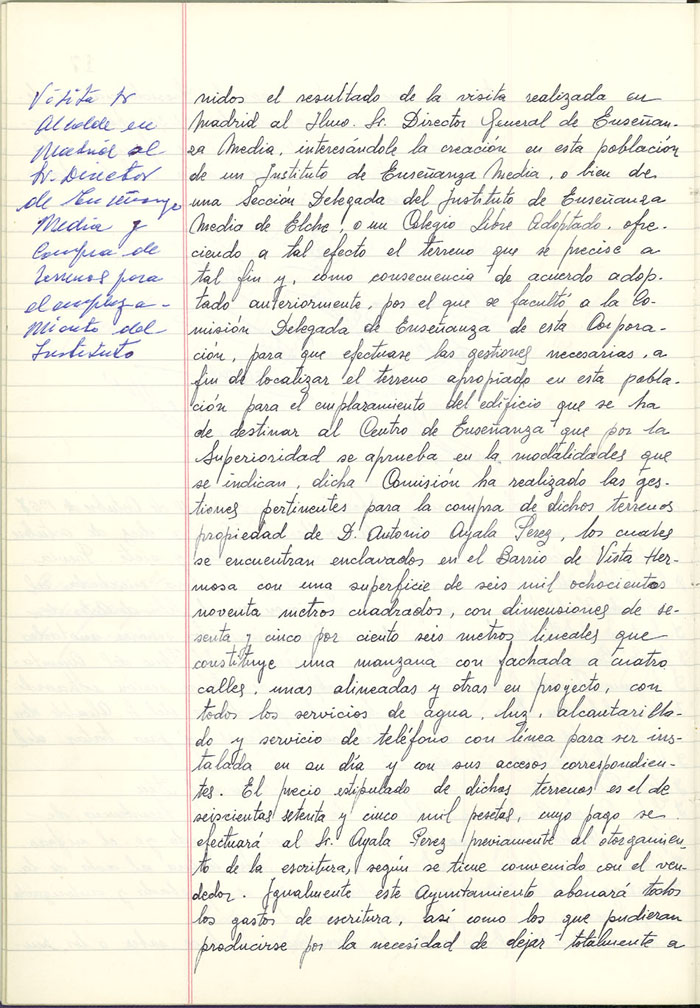 Visita Sr
Alcalde en
Madrid al
Sr. Director
de Enseñanza
Media y
Compra de
terrenos para
el empleza-
miento del
Instituto
nidos el resultado de la visita realizada en
Madrid al Ilmo. Sr. Director General de Enseñan-
za Media, interesándole la creación en esta población
de un Instituto de Enseñanza Media, o bien de
una Sección Delegada del Instituto de Enseñanza
Media de Elche, o un Colegio Libre Adoptado, ofre-
ciendo a tal efecto el terreno que se precise a
tal fin y, como consecuencia de acuerdo adop-
tado anteriormente, por el que se facultó a la Co-
misión Delegada de Enseñanza de esta Corpora-
ción, para que efectuase las gestiones necesarias, a
fin de localizar el terreno apropiado en esta pobla-
ción para el emplazamiento del edificio que se ha
de destinar al Centro de Enseñanza que por la
Superioridad se aprueba en la modalidades que
se indican, dicha Comisión ha realizado las ges-
tiones pertinentes para la compra de dichos terrenos
propiedad de D. Antonio Ayala Perez, los cuales
se encuentran enclavados en el Barrio de Vista Her-
mosa con una superficie de seis mil ochocientos
noventa metros cuadrados, con dimensiones de se-
senta y cinco por ciento seis metros lineales que
constituye una manzana con fachada a cuatro
calles, unas alineadas y otras en proyecto, con
todos los servicios de agua, luz, alcantarilla-
do y servicio de teléfono con línea para ser ins-
talada en su día y con sus accesos correspondien-
tes. El precio estipulado de dichos terrenos es el de
seiscientas setenta y cinco mil pesetas, cuyo pago se
efectuará al Sr. Ayala Perez previamente al otorgamien-
to de la escritura, según se tiene convenido con el ven-
dedor. Igualmente este Ayuntamiento abonará todos
los gastos de escritura, así como los que pudieran
producirse por la necesidad de dejar totalmente a